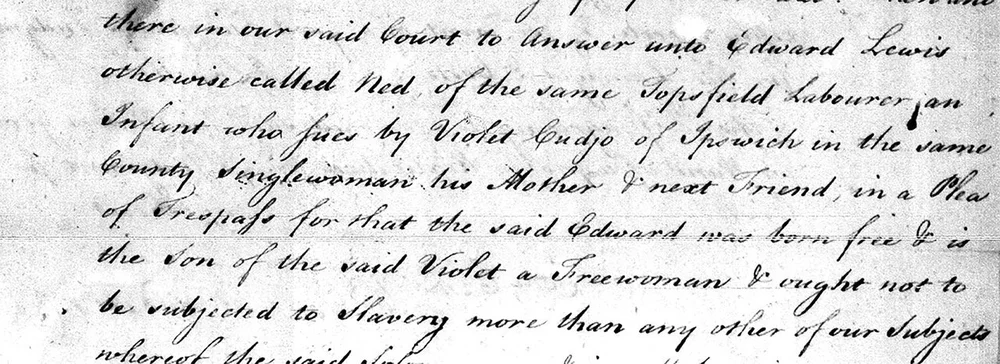 there in our said Court to Answer unto Edward Lewis
otherwise called Ned, of the same Topsfield Labourer, an
Infant who sues by Violet Cudjo of Ipswich in the same
County Singlewoman his Mother & next Friend, in a Plea
of Trespass for that the said Edward was born free & is
the Son of the said Violet a Freewoman & ought not to
be subjected to Slavery more than any other of our Subjects
whereof the said